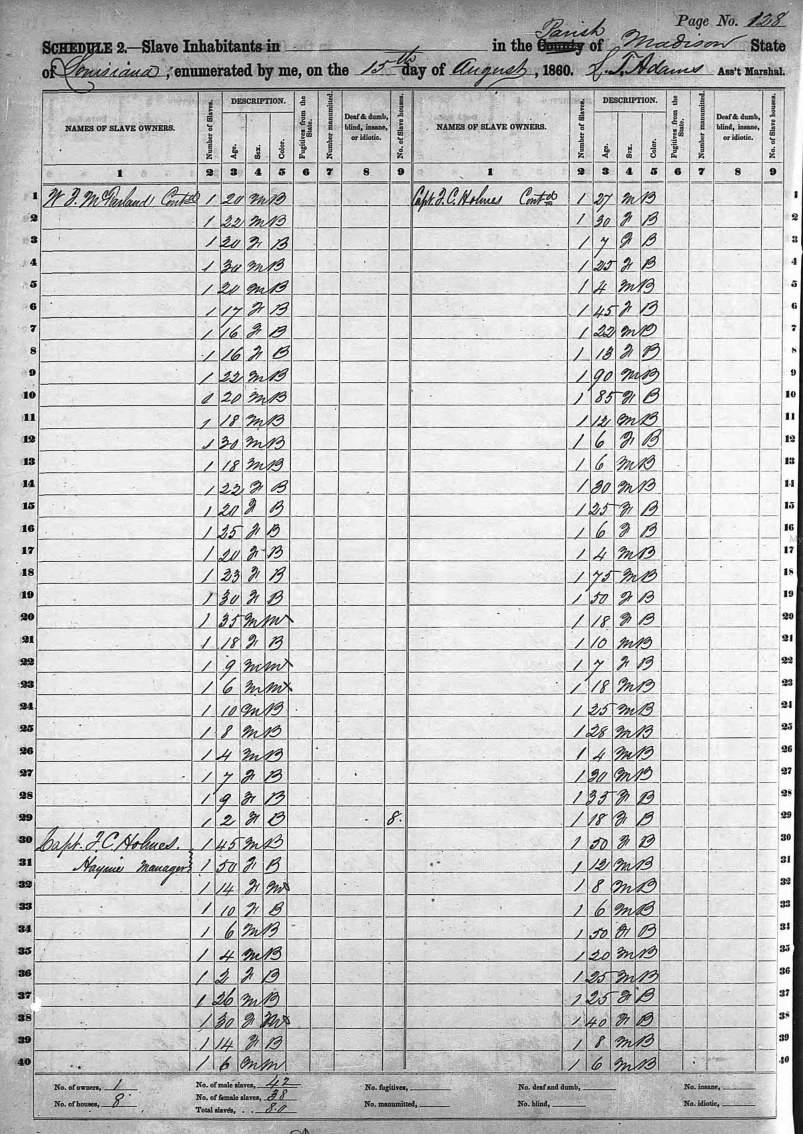 Page No. 128
SCHEDULE 2.—Slave Inhabitants in in the County Parish of Madison State
of Louisiana, enumerated by me, on the 15th day of August, 1860. Adams Ass't Marshal.
NAMES OF SLAVE OWNERS. Number of Slaves. DESCRIPTION. Age. Sex. Color. Fugitives from the State. Number manumitted. Deaf & dumb, blind, insane, or idiotic. No. of Slave houses. NAMES OF SLAVE OWNERS. Number of Slaves. DESCRIPTION. Age. Sex. Color. Fugitives from the State. Number manumitted. Deaf & dumb, blind, insane, or idiotic. No. of Slave houses.
1 2 3 4 5 6 7 8 9 1 2 3 4 5 6 7 8 9
1 Contd 1 20 M B Capt. F. C. Holmes Contd 1 27 M B 1
2 1 22 M B 1 30 F B 2
3 1 20 F B 1 7 F B 3
4 1 30 M B 1 25 F B 4
5 1 20 M B 1 4 M B 5
6 1 17 F B 1 45 F B 6
7 1 16 F B 1 22 M B 7
8 1 16 F B 1 13 F B 8
9 1 22 M B 1 90 M B 9
10 1 20 M B 1 85 F B 10
11 1 18 M B 1 12 M B 11
12 1 30 M B 1 6 F B 12
13 1 18 M B 1 6 M B 13
14 1 22 F B 1 30 M B 14
15 1 20 F B 1 25 F B 15
16 1 25 F B 1 6 F B 16
17 1 20 F B 1 4 M B 17
18 1 23 F B 1 75 M B 18
19 1 30 F B 1 50 F B 19
20 1 35 M M 1 18 F B 20
21 1 18 F B 1 10 M B 21
22 1 9 M M 1 7 F B 22
23 1 6 M M 1 18 M B 23
24 1 10 M B 1 25 M B 24
25 1 8 M B 1 28 M B 25
26 1 4 M B 1 4 M B 26
27 1 7 F B 1 30 M B 27
28 1 9 F B 1 35 F B 28
29 1 2 F B 8 1 18 F B 29
30 Capt. F. C. Holmes. 1 45 M B 1 50 F B 30
31 Haynie Manager 1 50 F B 1 12 M B 31
32 1 14 F M 1 8 M B 32
33 1 10 F B 1 6 M B 33
34 1 6 M B 1 50 F B 34
35 1 4 M B 1 20 M B 35
36 1 2 F B 1 25 M B 36
37 1 26 M B 1 25 F B 37
38 1 30 F M 1 40 F B 38
39 1 14 F B 1 8 M B 39
40 1 6 M M 1 6 M B 40
No. of owners, 1 No. of male slaves, 42 No. fugitives, No. deaf and dumb, No. insane,
No. of houses, 8 No. of female slaves, 38 No. manumitted, No. blind, No. idiotic,
Total slaves, 80